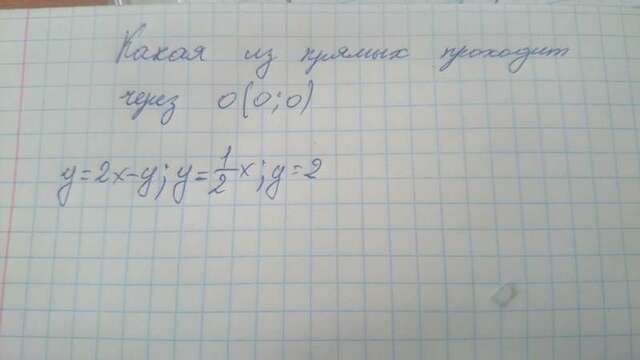 Какая из прямых проходит
через O(0;0)
y=2x-y; y=\frac{1}{2}x; y=2